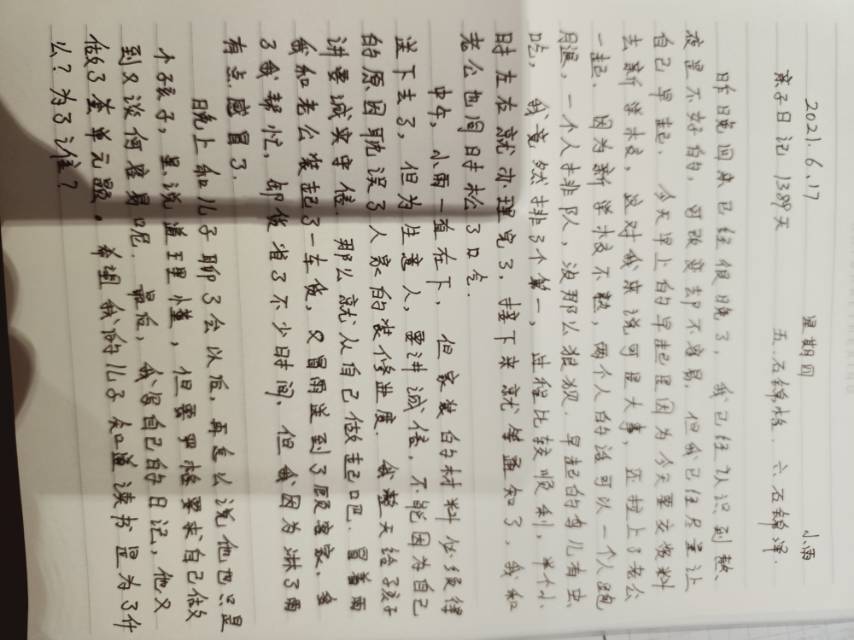 2021.6.17 星期四 小雨
亲子日记 1389天 五.石锦烁. 六石锦泽.
昨晚回来已经很晚了,我已经认识到熬
夜是不好的,可改变却不容易.但我已经尽量让
自己早起.今天早上的早起是因为今天要交资料
去新学校,这对我来说可是大事,还拉上了老公
一起.因为新学校不熟,俩个人的话可以一个人跑
腿,一个人排队,没那么狼狈.早起的鸟儿有虫
吃,我竟然排了个第一,过程比较顺利,半个小
时左右就办理完了,接下来就等通知了,我和
老公也同时松了口气.
中午,小雨一直在下,但家装的材料必须得
送下去了,但为生意人,要讲诚信,不能因为自己
的原因耽误了人家的装修进度.我整天给孩子
讲要诚实守信.那么就从自己做起吧.冒着雨
我和老公装起了一车货,又冒雨送到了顾客家.
了我帮忙,卸货省了不少时间,但我因为淋了雨
有点感冒了.
晚上和儿子聊了会以后,再怎么说他也只是
个孩子,虽说道理懂,但要严格要求自己做
到又谈何容易呢.最后,我写自己的日记,他又
做了查单元题.希望我的儿子知道读书是为了什
么?为了谁?